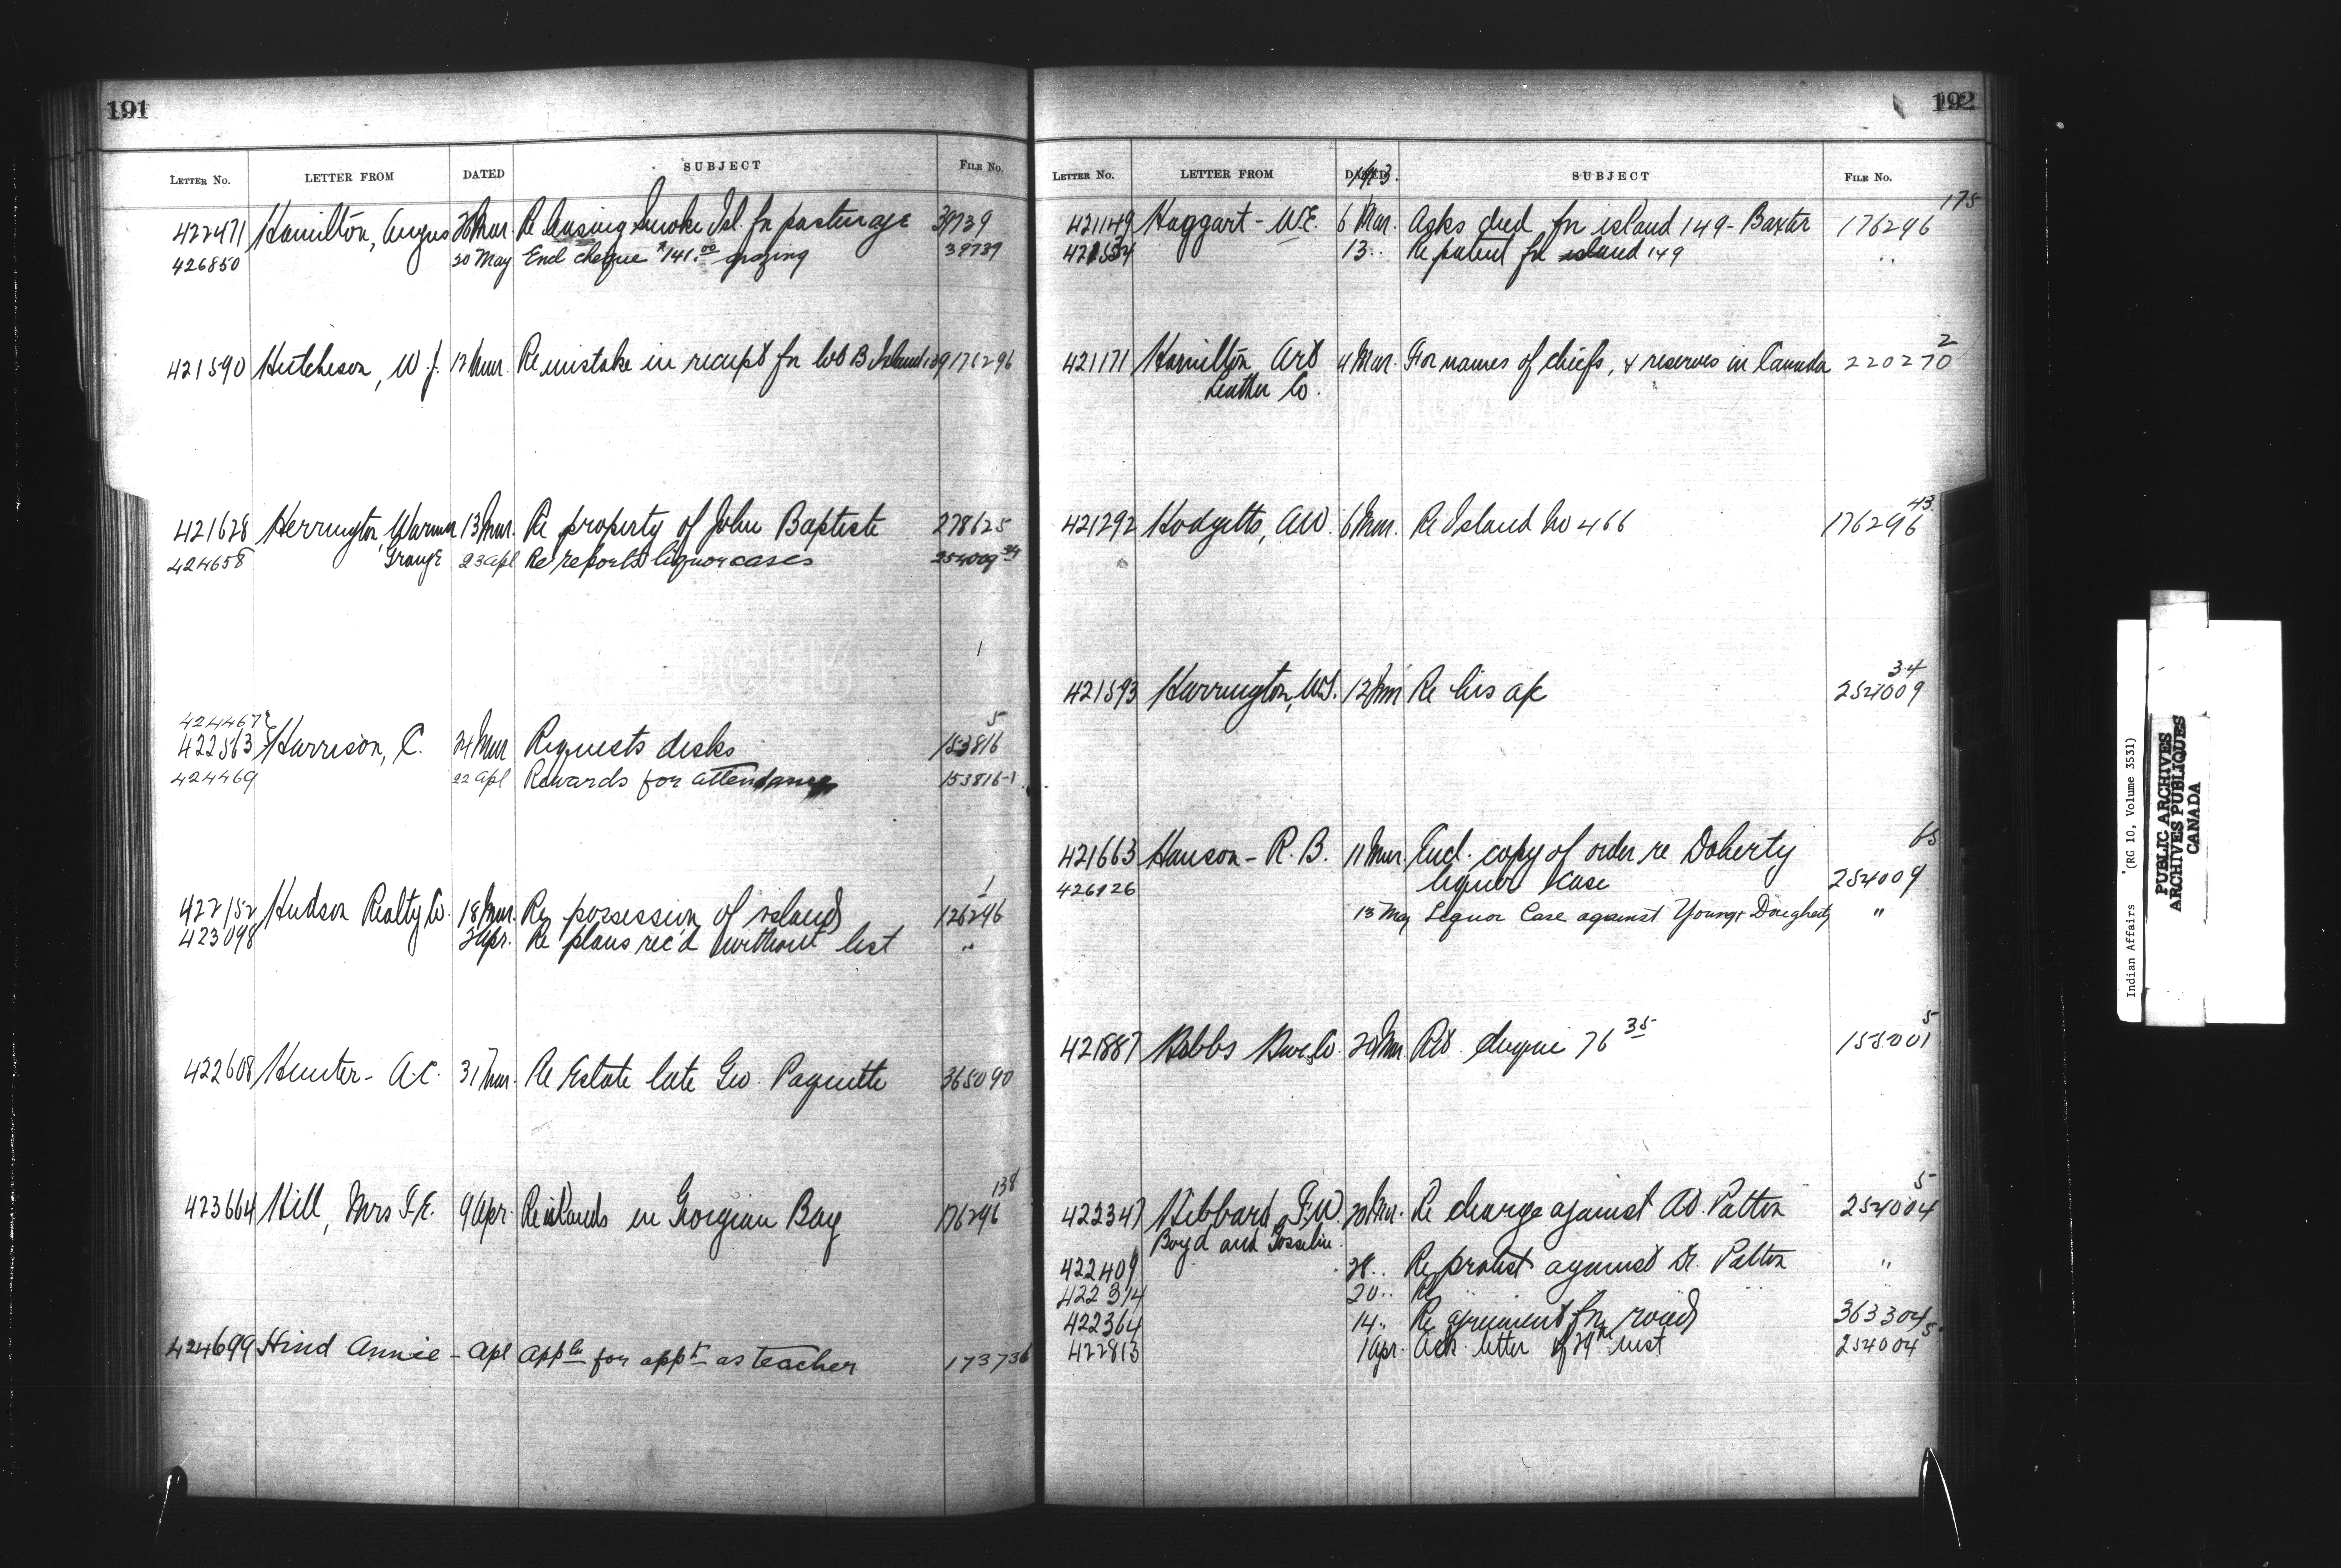 191
LETTER No. LETTER FROM DATED SUBJECT FILE No.
422471 Hamilton, Angus 26 Mar. Re leasing Smoke Isl. for pasturage 39739
426850 20 May Encl cheque $141.00 grazing 39739
421590 Hutcheson, W. J. 12 Mar. Re mistake in receipt for lot B Island 139 176296
421628 Herrington, Warren 13 Mar. Re property of John Baptiste 278625
Grange
424658 23 Apl Re reports liquor cases 254009 34
1
424467
422563 Harrison, C. 24 Mar Requests desks 153816 5
424469 22 Apl Rewards for attendance 153816-1
422152 Hudson Realty Co. 18 Mar. Re possession of island 126296 1
423098 2 Apr. Re plans rec'd without list "
422608 Hunter - A.C. 31 Mar. Re Estate late Geo. Paquette 365090
423664 Hill, Mrs F.E. 9 Apr. Re islands in Georgian Bay 176296 138
424699 Hind Annie - Apl Appln for appt as teacher 173736
192
LETTER No. LETTER FROM DATED SUBJECT FILE No.
1913.
421149 Haggart - W.E. 6 Mar. Asks deed for island 149 - Baxter 176296 175
421534 13 .. Re patent for island 149 ..
421171 Hamilton Art 4 Mar. For names of chiefs, & reserves in Canada 220270 2
Leather Co.
421292 Hodgetts, A.W. 6 Mar. Re Island No 466 176296 43.
421593 Harrington, W.S. 12 Mar Re his a/c 254009 34
421663 Hanson - R. B. 11 Mar. Encl. copy of order re Doherty 65
liquor case 254009
426126 13 May Liquor Case against Young & Dougherty "
421887 Hobbs 20 Mar. Ret. cheque 76 35 155001 5
422347 Hibbard, F.W. 20 Mar. Re charge against AD. Patton 254004 5
Boyd and Gosselin
422409 28 .. Re protest against Dr. Patton "
422314 20 .. Re " "
422364 14 .. Re agreement for road 363304
422813 1 Apr. Ack. letter of 29th inst 254004 5
Indian Affairs (RG 10, Volume 3531)
PUBLIC ARCHIVES
ARCHIVES PUBLIQUES
CANADA